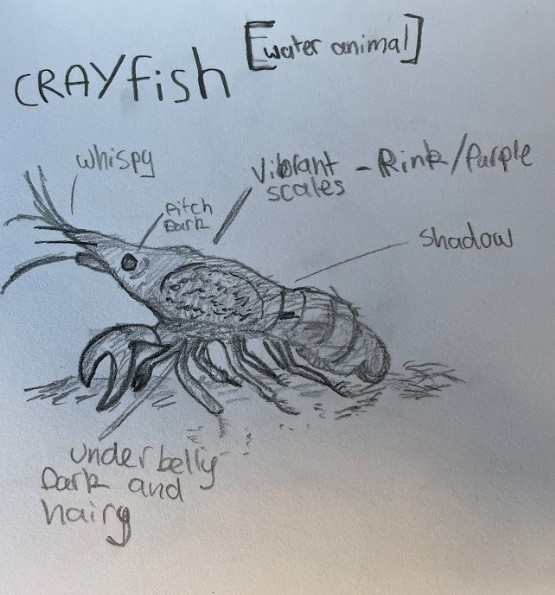 CRAYfish [water animal]
whispy
Vibrant - Rink/Purple
scales
Pitch
Dark
shadow
underbelly
Dark and
hairy